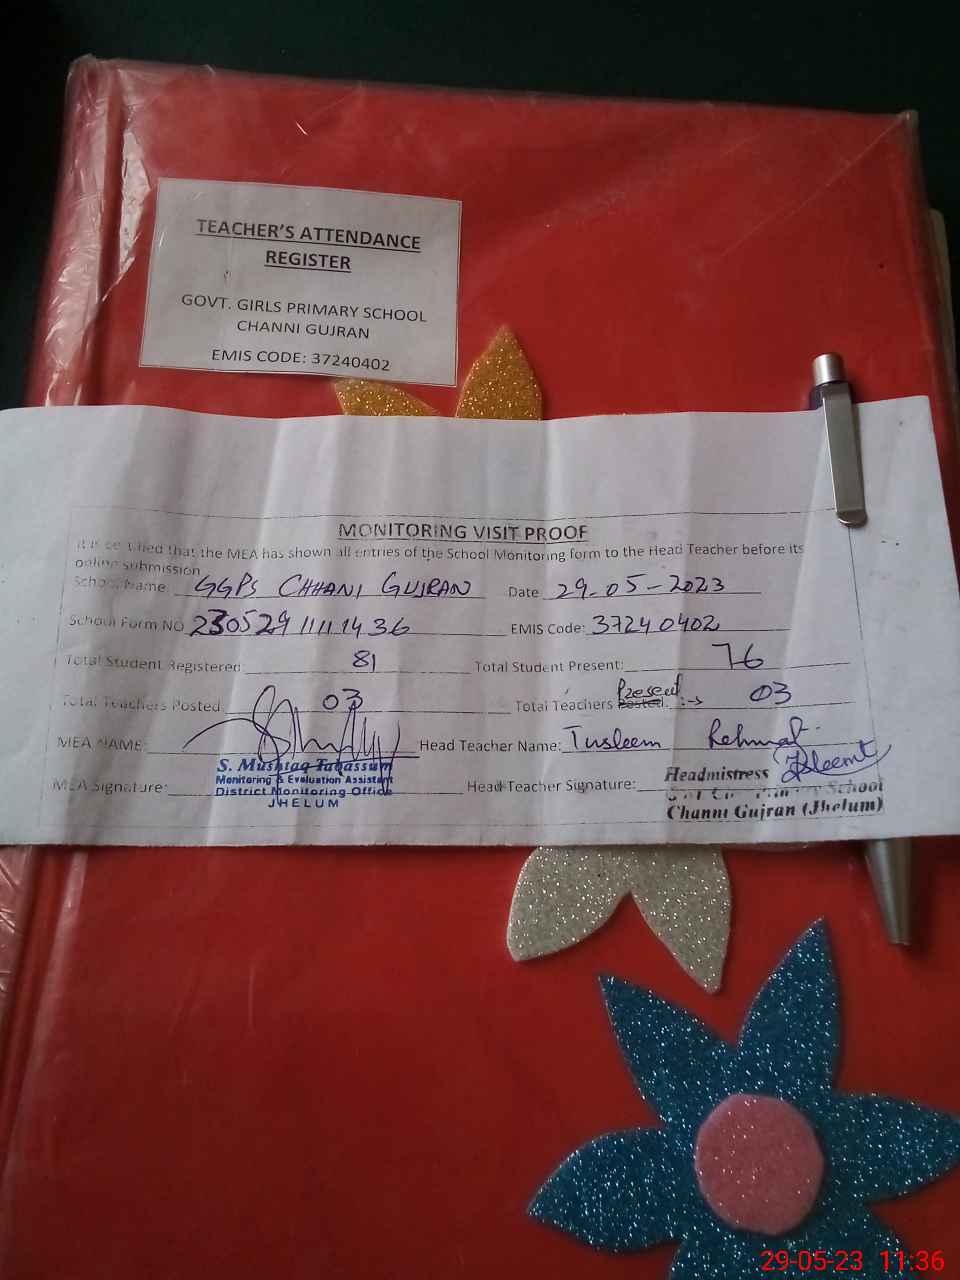 TEACHER'S ATTENDANCE
REGISTER
GOVT. GIRLS PRIMARY SCHOOL
CHANNI GUJRAN
EMIS CODE: 37240402
MONITORING VISIT PROOF
It is certified that the MEA has shown all entries of the School Monitoring form to the Head Teacher before its
online submission
School Name: GGPS CHHANI GUJRAN Date 29-05-2023
School Form NO 230529111111436 EMIS Code: 37240402
Total Student Registered: 81 Total Student Present: 76
Total Teachers Posted 03 Total Teachers Posted Present :→ 03
MEA NAME: Head Teacher Name: Tusleem Rehmat
S. Mushtaq Tabassum
Monitoring & Evaluation Assistant
MEA Signature: District Monitoring Office Head Teacher Signature: Headmistress
JHELUM
School
Channi Gujran (Jhelum)
29-05-23 11:36